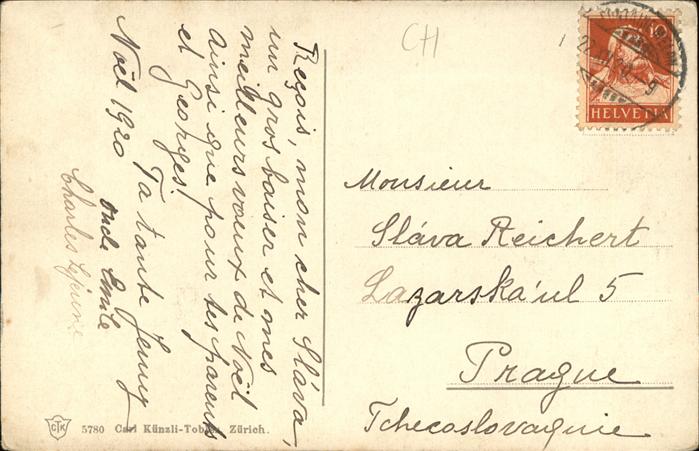 Reçois, mon cher Sláva,
un gros baiser et mes
meilleurs vœux de Noël
ainsi que pour tes parents
et Georges!
Ta tante Jenny
Noël 1920
oncle Emile
Charles Lejeune
CH
10
HELVETIA
Monsieur
Sláva Reichert
Lazarská ul 5
Prague
Tchecoslovaquie
CTK
5780 Carl Künzli-Tobler, Zürich.